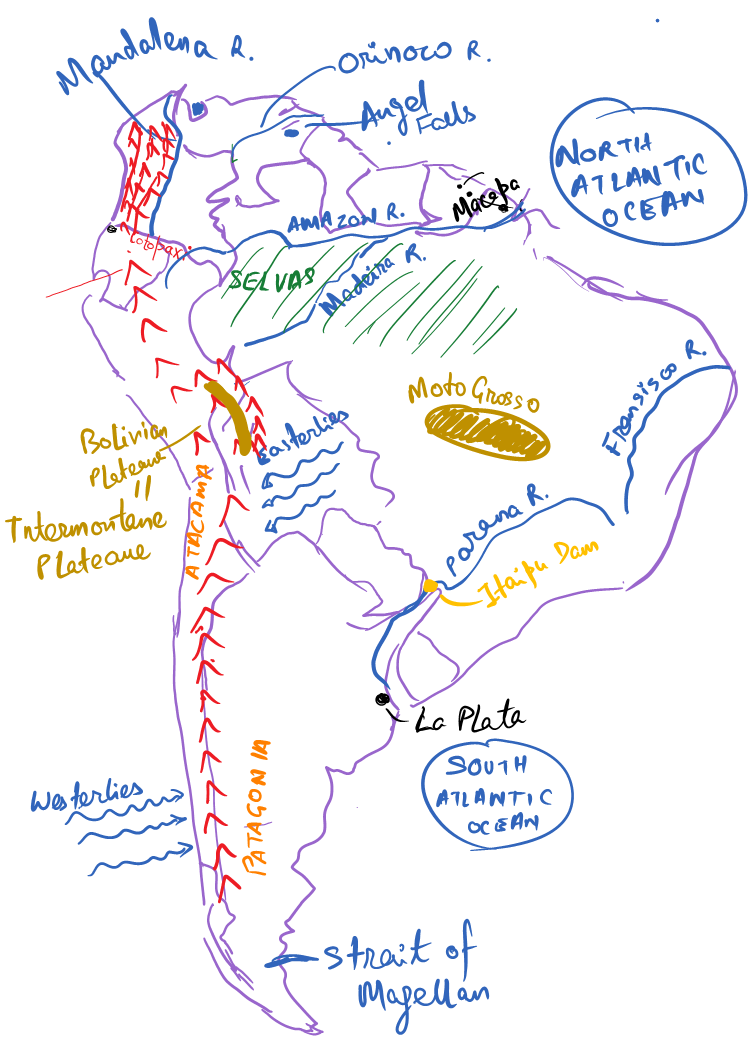 Mandalena R.
Orinoco R.
Angel
Falls
NORTH
ATLANTIC
OCEAN
Macepa
AMAZON R.
Cotopaxi
SELVAS
Madeira R.
Moto Grosso
Fransisco R.
Bolivian
Plateaue
Intermontane
Plateaue
Easterlies
ATACAMA
Parena R.
Itaipu Dam
La Plata
SOUTH
ATLANTIC
OCEAN
Westerlies
PATAGONIA
Strait of
Magellan